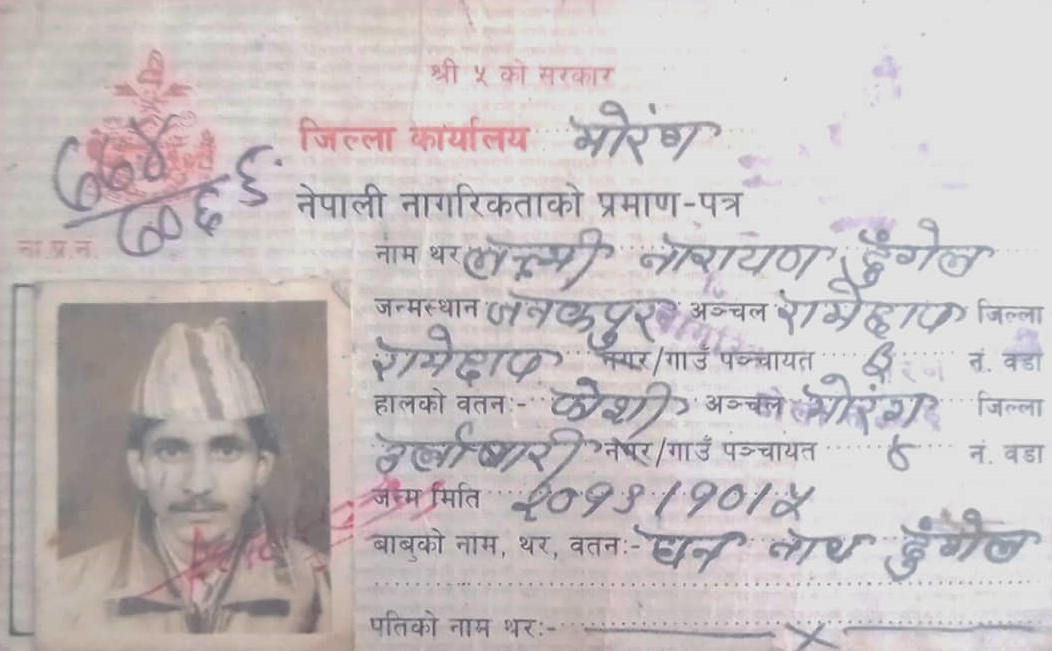 श्री ५ को सरकार
जिल्ला कार्यालय मोरंग
७७४
७०६६
नेपाली नागरिकताको प्रमाण-पत्र
ना.प्र.नं.
नाम थर लक्ष्मी नारायण ढुंगेल
जन्मस्थान जनकपुर अञ्चल रामेछाप जिल्ला
रामेछाप नगर/गाउँ पञ्चायत नं. वडा
हालको वतन:- कोशी अञ्चल मोरंग जिल्ला
उर्लाबारी नगर/गाउँ पञ्चायत ४ नं. वडा
जन्म मिति २०१९।१०।५
बाबुको नाम, थर, वतन:- घन नाथ ढुंगेल
पतिको नाम थर:- ×